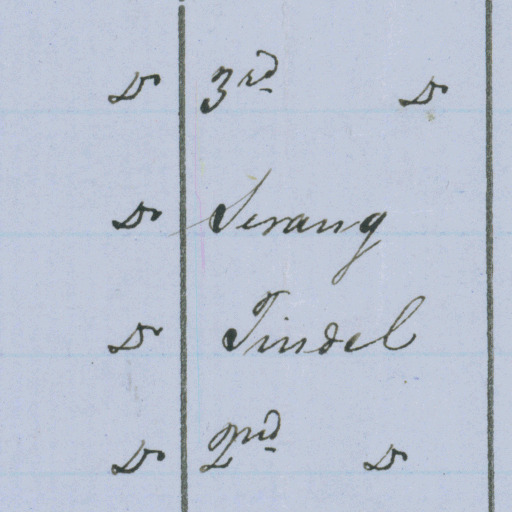 Do 3rd Do
Do Serang
Do Tindel
Do 2nd Do